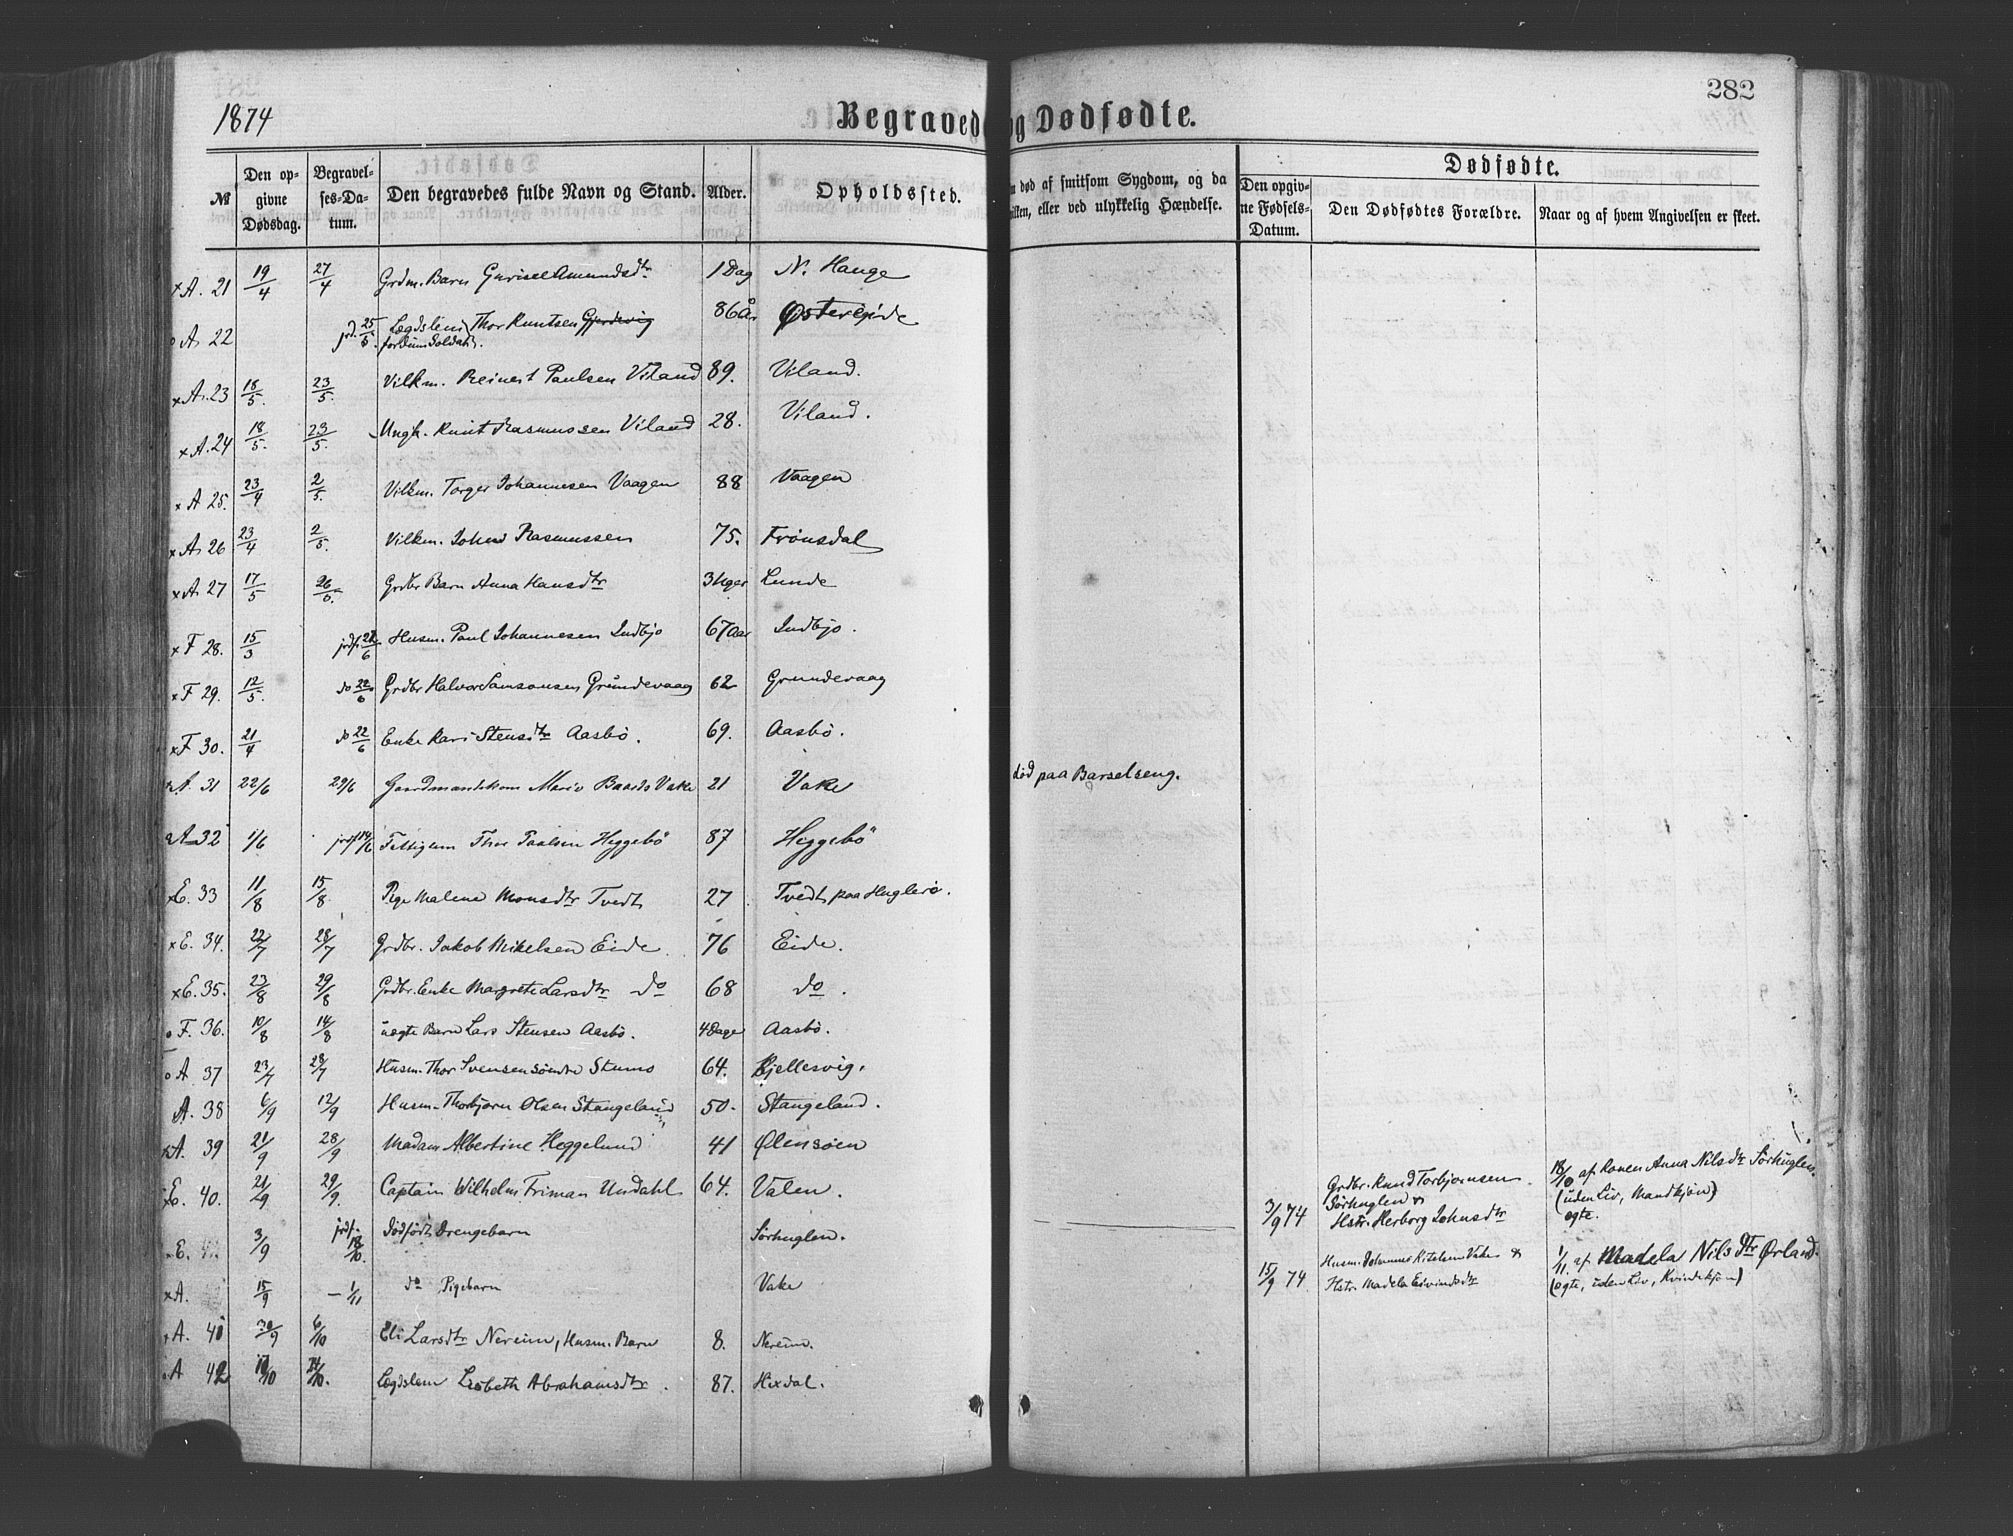 1874
Begravede og Dødfødte.
282
Dødfødte.
№ Den opgivne Dødsdag. Begravelses-Datum. Den begravedes fulde Navn og Stand. Alder. Opholdssted. død af smitsom Sygdom, og da hvilken, eller ved ulykkelig Hændelse. Den opgivne Fødsels-Datum. Den Dødfødtes Forældre. Naar og af hvem Angivelsen er skeet.
x A. 21 19/4 27/4 Grdm. Barn Amundsdtr 1 Dag N. Hauge
o A 22 jrd. 25/5. Lægdslem Thor Knutsen Gjerdevig 86 Aar Østereide
fordum Soldat.
x A. 23 18/5. 23/5. Vilkm. Reinert Paulsen Viland 89. Viland.
x A. 24 18/5. 23/5. Ungk. Knut Rasmussen Viland 28. Viland.
x A 25. 23/4 2/5. Vilkm. Torger Johannesen Vaagen 88 Vaagen
x A 26 23/4 2/5. Vilkm. Rasmussen 75. Frønsdal
x A 27 17/5 26/5. Grdbr Barn Anna Hansdtr 3 Uger Lunde
x F 28. 15/3 jrdf. 22/6 Husm. Paul Johannesen Indbjo 67 Aar Indbjo.
x F 29. 12/5. do 22/6 Grdbr Halvor Samsonsen Grundevaag 62 Grundevaag
x F 30. 21/4 do 22/6 Enke Kari Stensdtr Aasbø. 69. Aasbø.
A. 31 22/6 29/6 Gaardmandskone Mario Baards Vake 21 Vake død paa Barselseng.
A 32 1/6 jrdf 14/6 Fattiglem Thor Paalsen Heggebø 87 Heggebø
x E. 33 11/8 15/8. Pige Malene Monsdtr Tvedt 27 Tvedt paa Huglerø.
x E. 34. 22/7 28/7 Grdbr. Jakob Mikelsen Eide. 76 Eide.
x E. 35. 23/8 29/8 Grdbr. Enke Margrete Larsdtr do 68 do.
o F. 36. 10/8 14/8 uægte Barn Lars Stensen Aasbø. 4 Dage Aasbø.
o A 37 23/7 28/7 Husm. Thor Svensen søndre Stumo 64. Kjellesvig.
A. 38 6/9 12/9 Husm. Thorbjørn Olsen Stangeland 50. Stangeland.
x A. 39 21/9 28/9 Madam Albertine Heggelund 41 Ølensøen
E. 40. 21/9 29/9. Captain Wilhelm Friman Undahl 64. Valen.
E. 3/9 jrdf. 18/10. Dødfødt Drengebarn Sørhuglen. 3/9 74 Grdbr. Knud Torbjørnsen Sørhuglen & Hstr. Herborg Johnsdtr 18/10 af Konen Anna Nilsdtr Sørhuglen.
(uden Liv, Mandkjøn)
ægte.
x A. 15/9 — 1/11 do Pigebarn Vake 15/9 74. Husm. Johannes Kitelsen Vake & Hstr. Madela Eivindsdtr 1/11. af Madela Nils Dtr Ørland.
(ægte, uden Liv, Kvindekjøn)
x A. 41 30/9 6/10 Eli Larsdtr Nereim, Husm. Barn 8. Nereim.
A 42 /10 /10. Lægdslem Lisbeth Abrahamsdtr. 87. Hexdal.